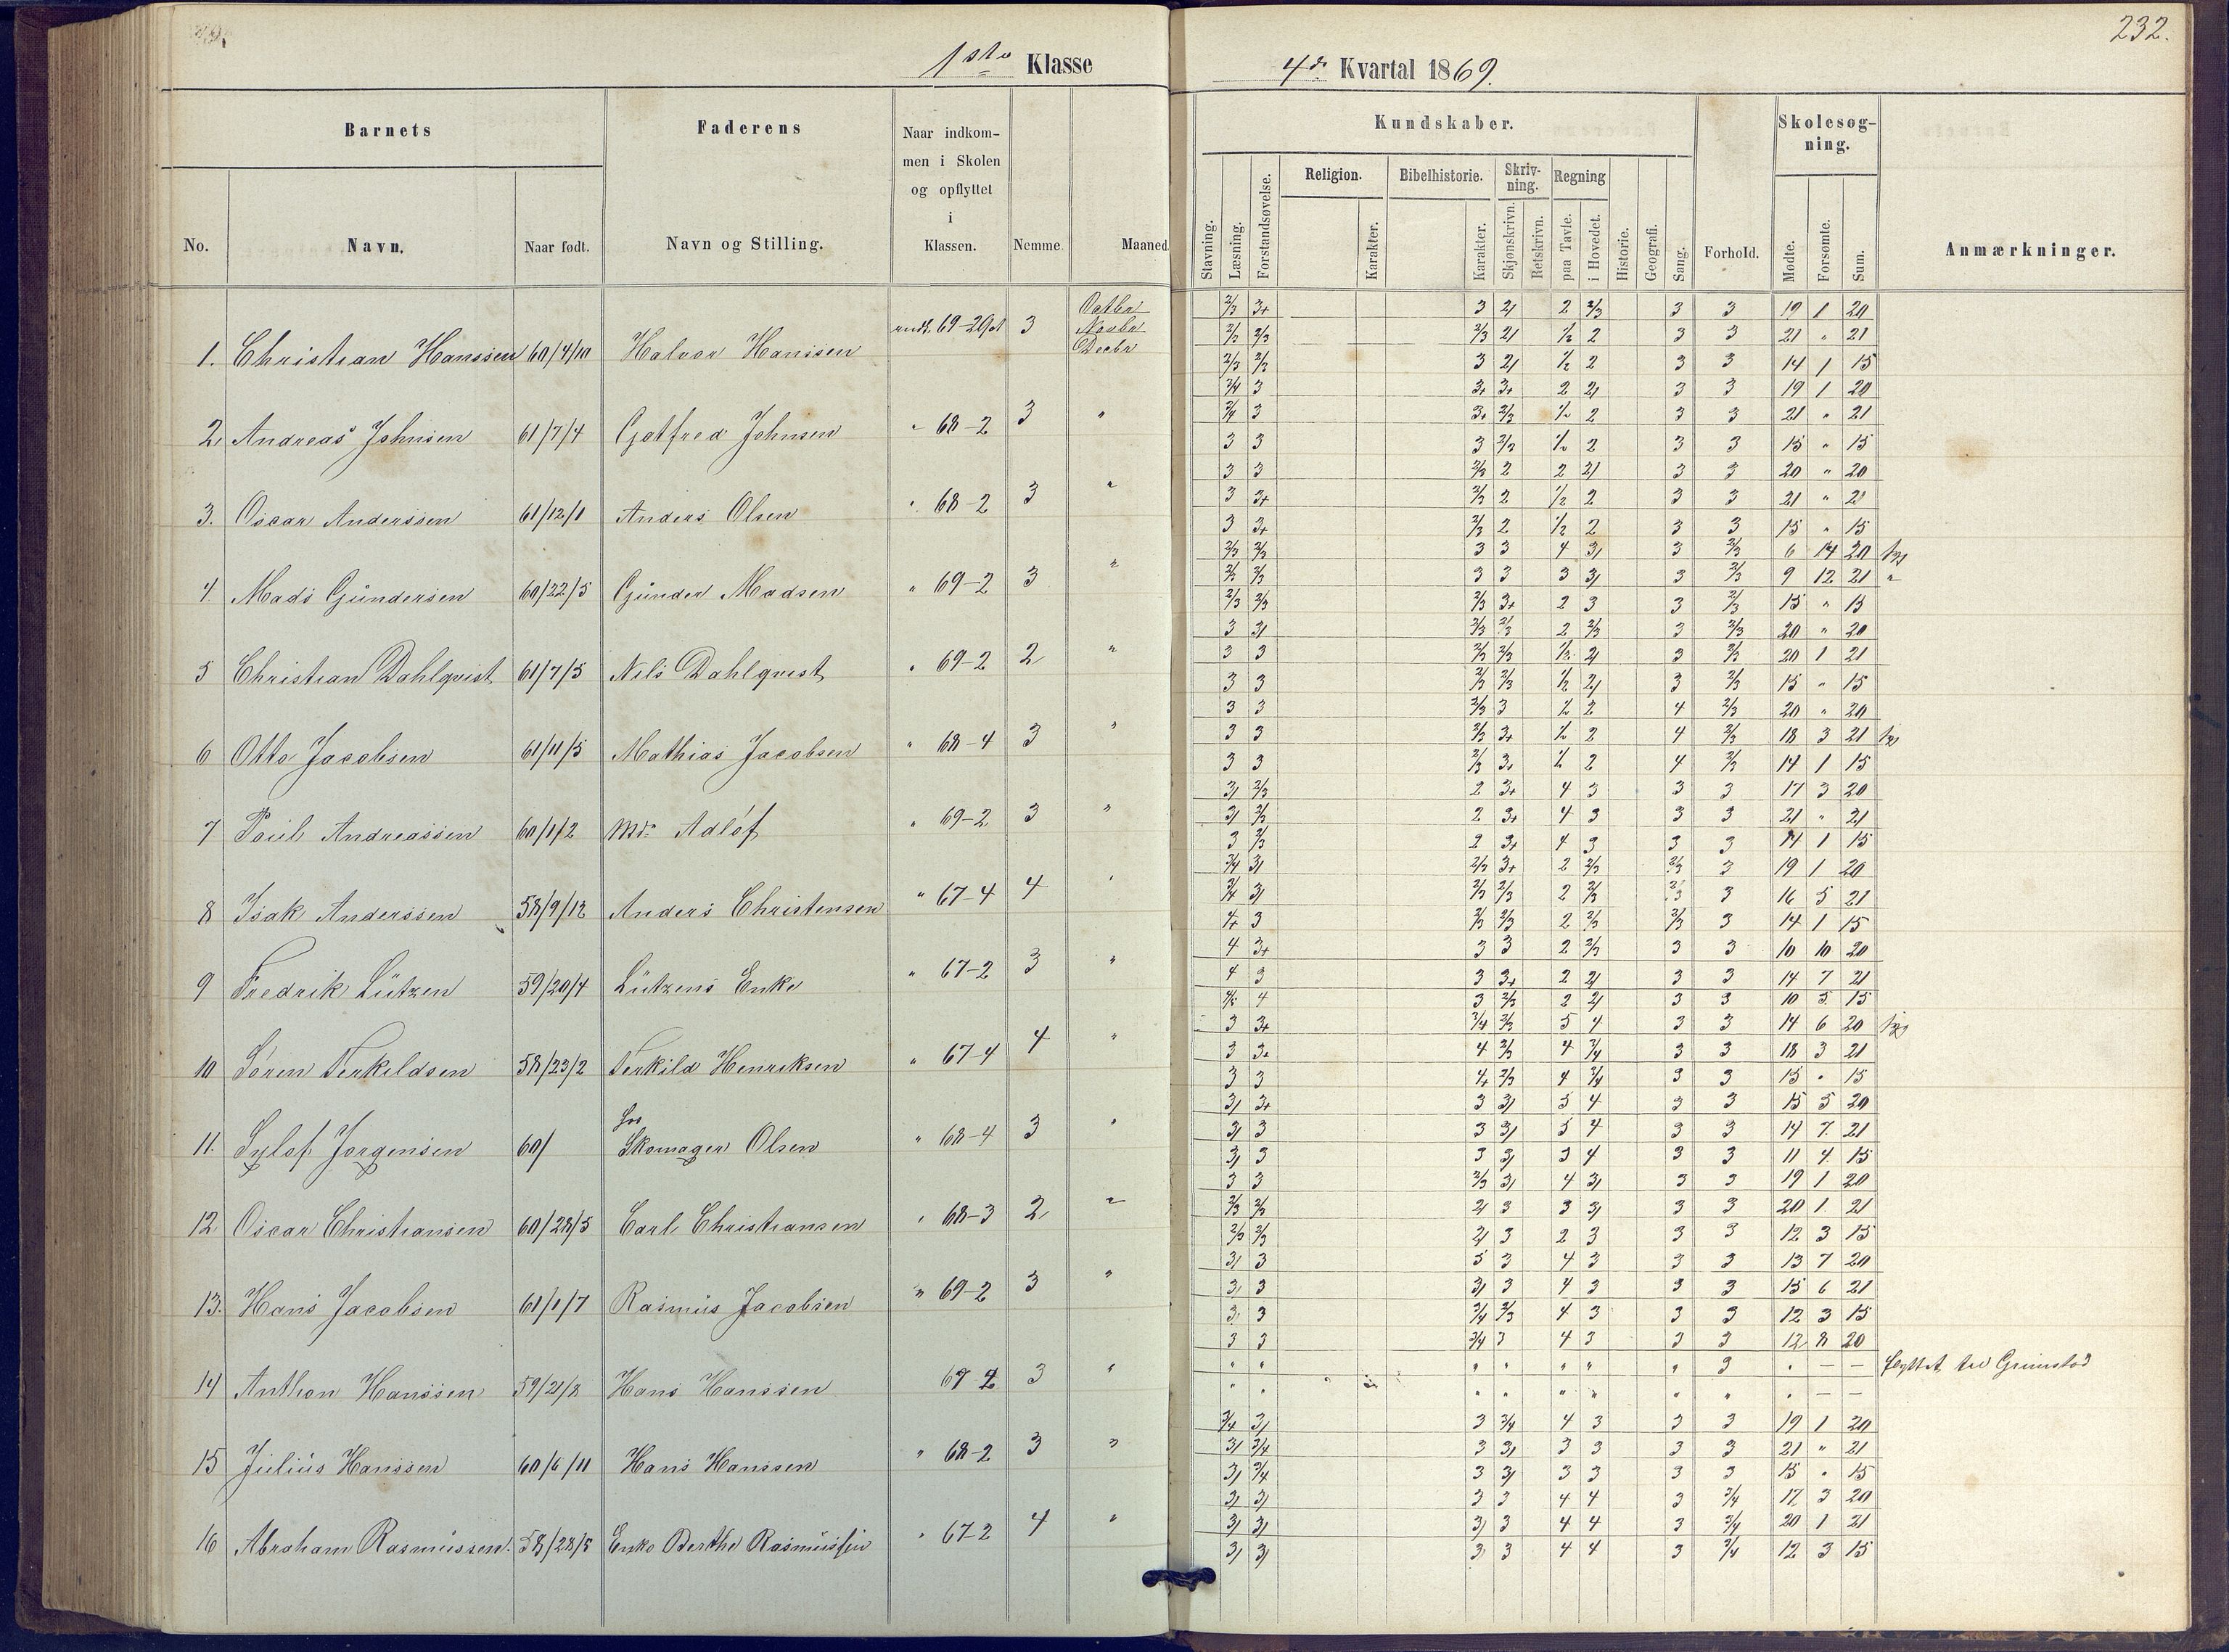 232.
1ste Klasse
4de Kvartal 1869.
Barnets
Faderens
Naar indkommen i Skolen og opflyttet i Klassen.
Nemme
Maaned
No.
Navn.
Naar født.
Navn og Stilling.
Kundskaber.
Stavning.
Læsning.
Forstandsøvelse.
Religion.
Karakter.
Bibelhistorie.
Karakter.
Skrivning.
Skjønskrivn.
Retskrivn.
Regning
paa Tavle.
i Hovedet.
Historie.
Geografi.
Sang.
Forhold.
Skolesøgning.
Mødte.
Forsømte.
Sum.
Anmærkninger.
1. Christian Hanssen 60/4/10 Halvor Hanssen 69-2 3 Octbr Novbr Decbr
2 Andreas Johnsen 61/7/4 Gotfred Johnsen " 68-2 3 "
3. Oscar Anderssen 61/12/1 Anders Olsen " 68-2 3 "
4 Mads Gundersen 60/22/5 Gunder Madsen " 69-2 3 "
5 Christian Dahlqvist 61/7/5 Nils Dahlqvist " 69-2 2 "
6 Otto Jacobsen 61/11/5 Mathias Jacobsen " 68-4 3 "
7 Poul Andreassen 60/1/2 Adlof " 69-2 3 "
8 Isak Anderssen 58/9/12 Anders Christensen " 67-4 4 "
9 Fredrik Lützen 59/20/4 Lützens Enke " 67-2 3 "
10 Søren Terkildsen 58/23/2 Terkild Henriksen " 67-4 4 "
11. Sylof Jørgensen 60/ Skomager Olsen " 68-4 3 "
12 Oscar Christiansen 60/28/5 Carl Christiansen " 68-3 2 "
13. Hans Jacobsen 61/1/7 Rasmus Jacobsen " 69-2 3 "
14 Anthon Hanssen 59/21/8 Hans Hanssen 67 2 3 "
15 Julius Hanssen 60/6/11 Hans Hanssen " 68-2 3 "
16 Abraham Rasmussen. 58/28/5 Enke Berthe Rasmussen " 67-2 4 "
2/3 3+ 3 21 2 2/3 3 3 19 1 20
2/3 2/3 2/3 21 1/2 2 3 3 21 " 21
2/3 2/3 3 21 1/2 2 3 3 14 1 15
3/4 3 3+ 3+ 2 21 3 3 19 1 20
3/4 3 3+ 2/3 1/2 2 3 3 21 " 21
3 3 3 2/3 1/2 2 3 3 15 " 15
3 3 2/3 2 2 21 3 3 20 " 20
3 3+ 2/3 2 1/2 2 3 3 21 " 21
3 3+ 2/3 2 1/2 2 3 3 15 " 15
2/3 2/3 3 3 4 31 3 2/3 6 14 20
2/3 2/3 3 3 3 31 3 2/3 9 12 21 "
2/3 2/3 2/3 3+ 2 3 3 2/3 15 " 15
3 31 2/3 2/3 2 2/3 3 2/3 20 " 20
3 3 2/3 2/3 1/2 21 3 2/3 20 1 21
3 3 2/3 2/3 1/2 21 3 2/3 15 " 15
3 3 2/3 3 1/2 2 4 2/3 20 " 20
3 3 2/3 3+ 1/2 2 4 2/3 18 3 21
3 3 2/3 3+ 1/2 2 4 2/3 14 1 15
31 2/3 2 3+ 4 3 3 3 17 3 20
31 2/3 2 3+ 4 3 3 3 21 " 21
3 2/3 2 3+ 4 3 3 3 14 1 15
3/4 31 2/3 3+ 2 2/3 2/3 3 19 1 20
3/4 31 2/3 2/3 2 2/3 2/3 3 16 5 21
4+ 3 2/3 2/3 2 2/3 2/3 3 14 1 15
4 3+ 3 3 2 2/3 3 3 10 10 20
4 3 3 3+ 2 21 3 3 14 7 21
4/5 4 3 2/3 2 21 3 3 10 5 15
3 3+ 3/4 2/3 5 4 3 3 14 6 20
3 3+ 4 2/3 4 3/4 3 3 18 3 21
3 3 4+ 2/3 4 3/4 3 3 15 " 15
31 3+ 3 31 5 4 3 3 15 5 20
31 3 3 31 5 4 3 3 14 7 21
31 3 3 31 5 4 3 3 11 4 15
3 3 2/3 31 4 31 3 3 19 1 20
2/3 2/3 21 3 3 31 3 3 20 1 21
2/3 2/3 21 3 2 3 3 3 12 3 15
31 3 3 3 4 3 3 3 13 7 20
31 3 31 3 4 3 3 3 15 6 21
3 3 3/4 2/3 4 3 3 3 12 3 15
3 3 3/4 3 4 3 3 3 12 8 20
" " " " " " " 3 " — — flyttet til Grimstad
" " " " " " " " " — —
3/4 31 3 3/4 4 3 3 3 19 1 20
31 3/4 3 31 3 3 3 3 21 " 21
31 3/4 3 31 3 3 3 3 15 " 15
31 31 3 3 4 4 3 3/4 17 3 20
31 31 31 3 4 4 3 3/4 20 1 21
31 31 31 3 4 4 3 3/4 12 3 15